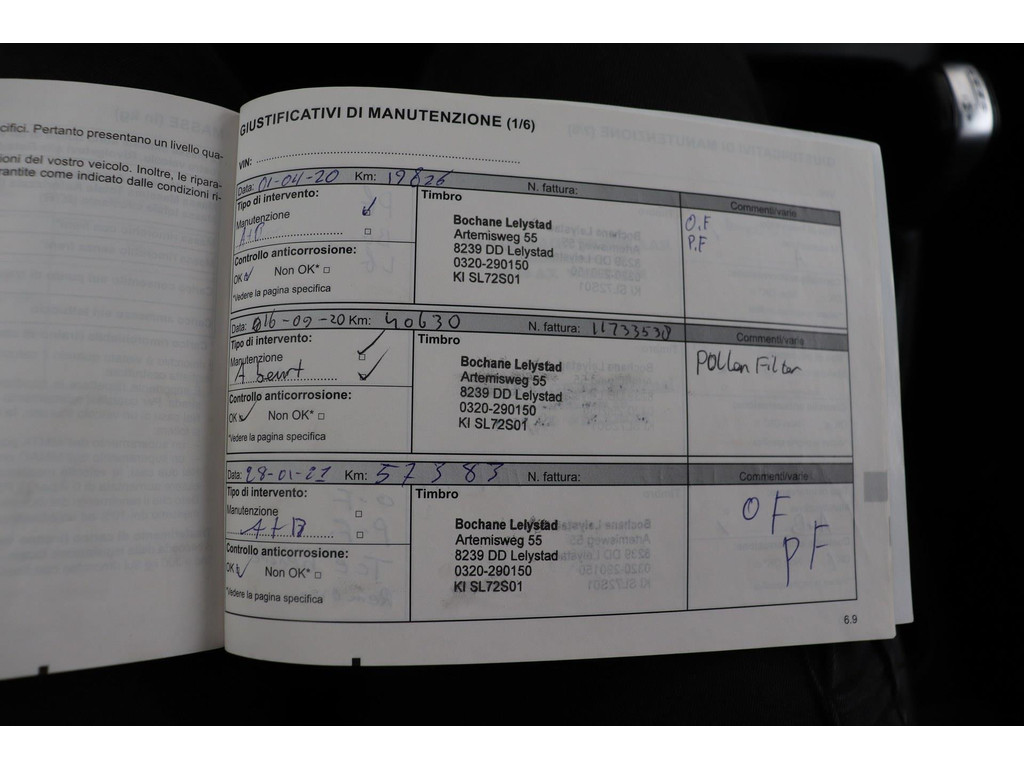 cifici. Pertanto presentano un livello qua-
ioni del vostro veicolo. Inoltre, le ripara-
rantite come indicato dalle condizioni ri-
GIUSTIFICATIVI DI MANUTENZIONE (1/6)
VIN:
Data: 01-04-20 Km: 19826 N. fattura:
Tipo di intervento:
Manutenzione
Controllo anticorrosione:
OK Non OK*
*Vedere la pagina specifica
Timbro
Bochane Lelystad
Artemisweg 55
8239 DD Lelystad
0320-290150
KI SL72S01
Commenti/varie
O.F
P.F
Data: 16-09-20 Km: 40630 N. fattura: 11733538
Tipo di intervento:
Manutenzione
A beurt
Controllo anticorrosione:
OK Non OK*
*Vedere la pagina specifica
Timbro
Bochane Lelystad
Artemisweg 55
8239 DD Lelystad
0320-290150
KI SL72S01
Commenti/varie
Pollen Filter
Data: 28-01-21 Km: 57383 N. fattura:
Tipo di intervento:
Manutenzione
A+B
Controllo anticorrosione:
OK Non OK*
*Vedere la pagina specifica
Timbro
Bochane Lelystad
Artemisweg 55
8239 DD Lelystad
0320-290150
KI SL72S01
Commenti/varie
OF
PF
6.9